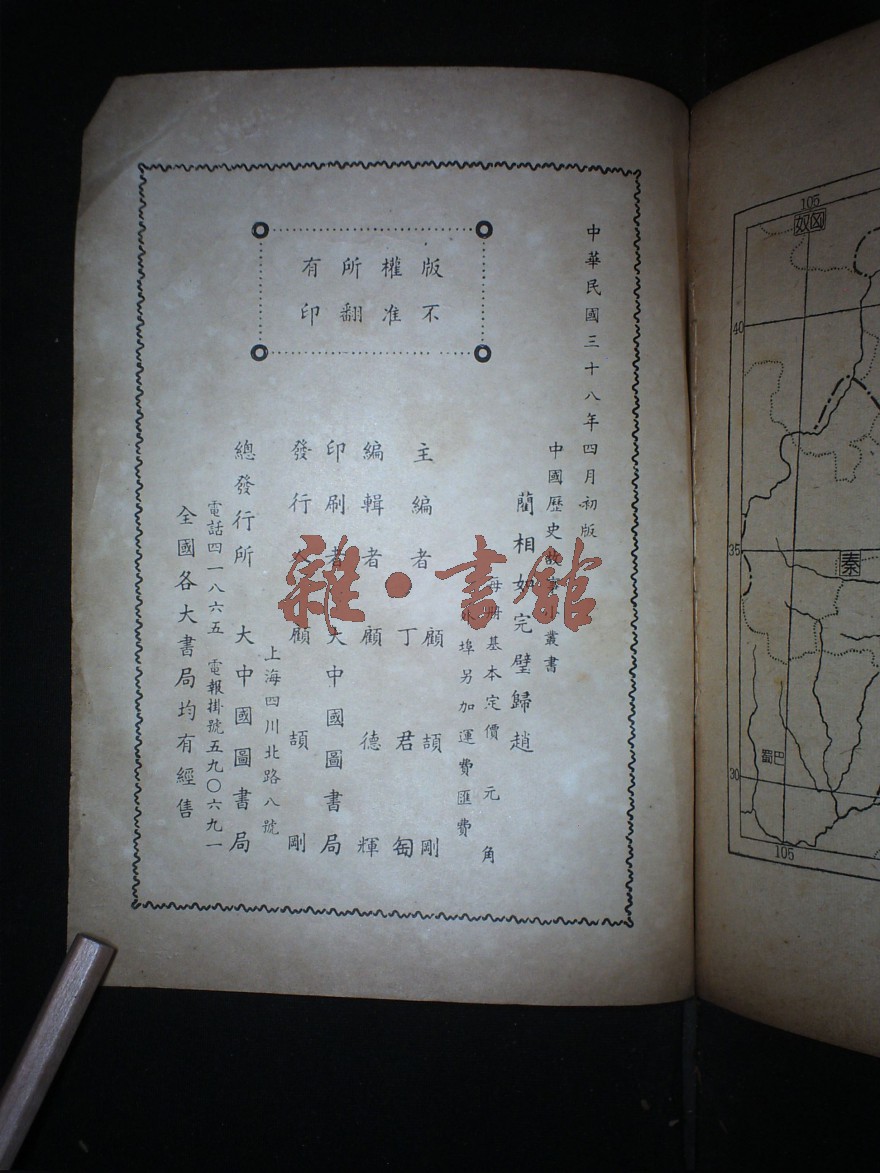 中華民國三十八年四月初版
中國歷史故事小叢書
藺相如完璧歸趙
每冊基本定價 元 角
外埠另加運費匯費
主編者 顧頡剛
丁君匋
編輯者 顧德輝
印刷者 大中國圖書局
發行人 顧頡剛
上海四川北路八號
總發行所 大中國圖書局
電話四一八六五 電報掛號五九〇六九一
全國各大書局均有經售
版權所有
不准翻印
雜·書館
105
匈奴
40
35
秦
巴蜀
30
105